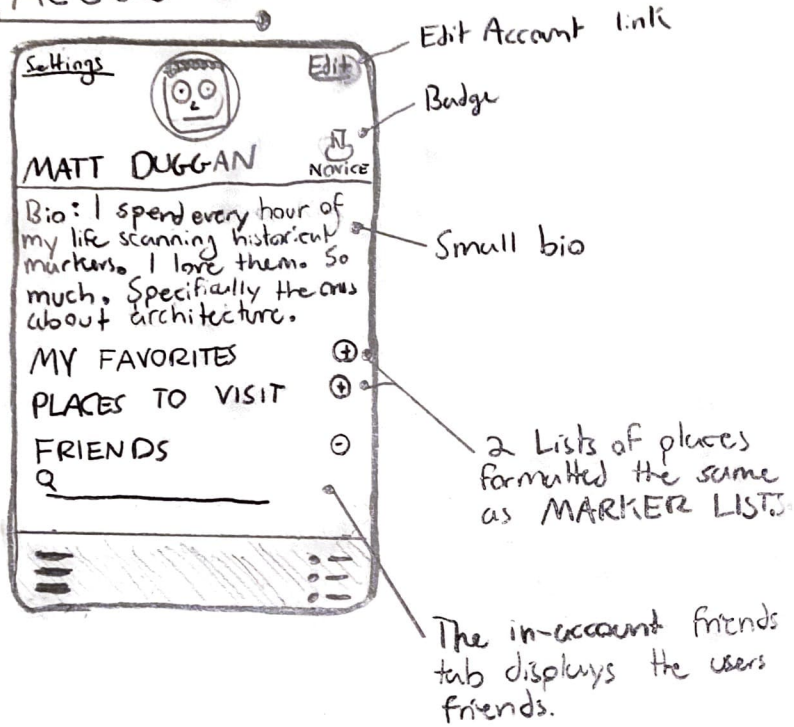 Settings
Edit
Edit Account link
Badge
N
MATT DUGGAN
NOVICE
Bio: I spend every hour of
my life scanning historical
markers. I love them. So
much. Specifically the ones
about architecture.
Small bio
MY FAVORITES
PLACES TO VISIT
FRIENDS
2 Lists of places
formatted the same
as MARKER LISTS
The in-account friends
tab displays the users
friends.